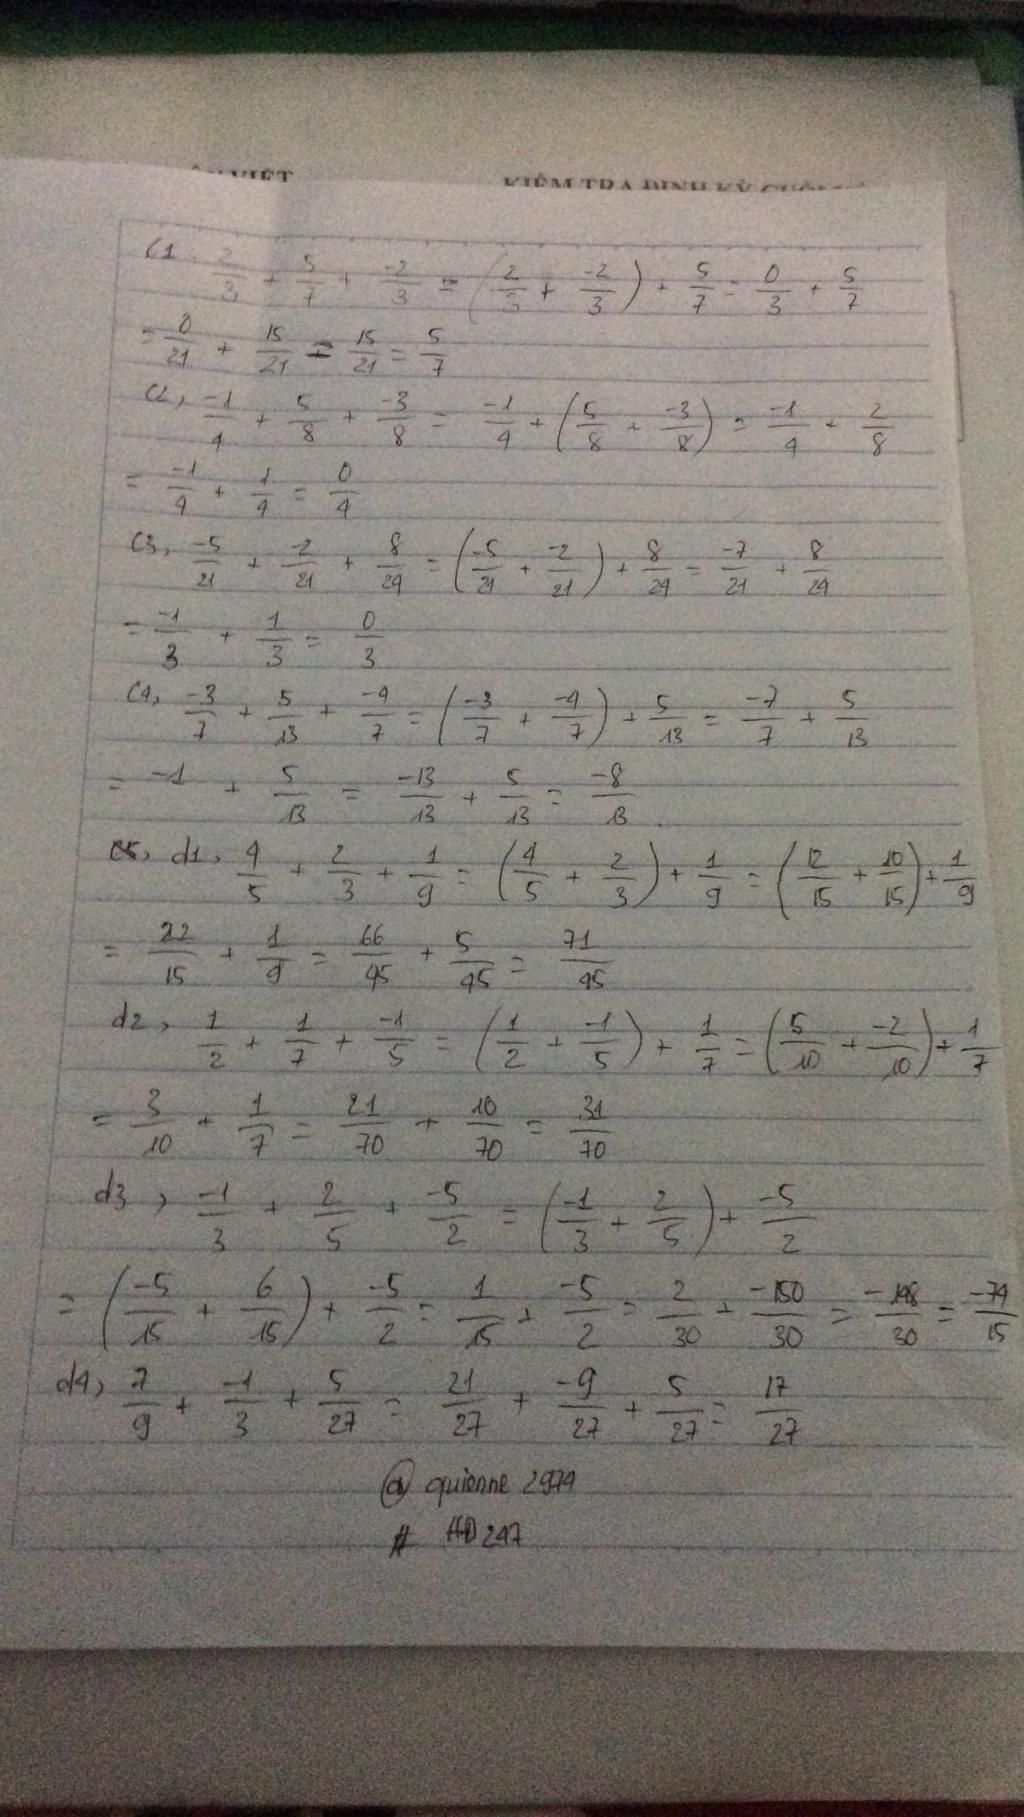 KIỂM TRA ĐỊNH KỲ CUỐI
C1. 2/3 + 5/7 + -2/3 = (2/3 + -2/3) + 5/7 = 0/3 + 5/7
= 0/21 + 15/21 = 15/21 = 5/7
C2, -1/4 + 5/8 + -3/8 = -1/4 + (5/8 + -3/8) = -1/4 + 2/8
= -1/4 + 1/4 = 0/4
C3, -5/21 + -2/21 + 8/24 = (-5/21 + -2/21) + 8/24 = -7/21 + 8/24
= -1/3 + 1/3 = 0/3
C4, -3/7 + 5/13 + -4/7 = (-3/7 + -4/7) + 5/13 = -7/7 + 5/13
= -1 + 5/13 = -13/13 + 5/13 = -8/13
d1, 4/5 + 2/3 + 1/9 = (4/5 + 2/3) + 1/9 = (12/15 + 10/15) + 1/9
= 22/15 + 1/9 = 66/45 + 5/45 = 71/45
d2, 1/2 + 1/7 + -1/5 = (1/2 + -1/5) + 1/7 = (5/10 + -2/10) + 1/7
= 3/10 + 1/7 = 21/70 + 10/70 = 31/70
d3, -1/3 + 2/5 + -5/2 = (-1/3 + 2/5) + -5/2
= (-5/15 + 6/15) + -5/2 = 1/15 + -5/2 = 2/30 + -150/30 = -148/30 = -74/15
d4, 7/9 + -1/3 + 5/27 = 21/27 + -9/27 + 5/27 = 17/27
@ quienne 2974
# HD 247